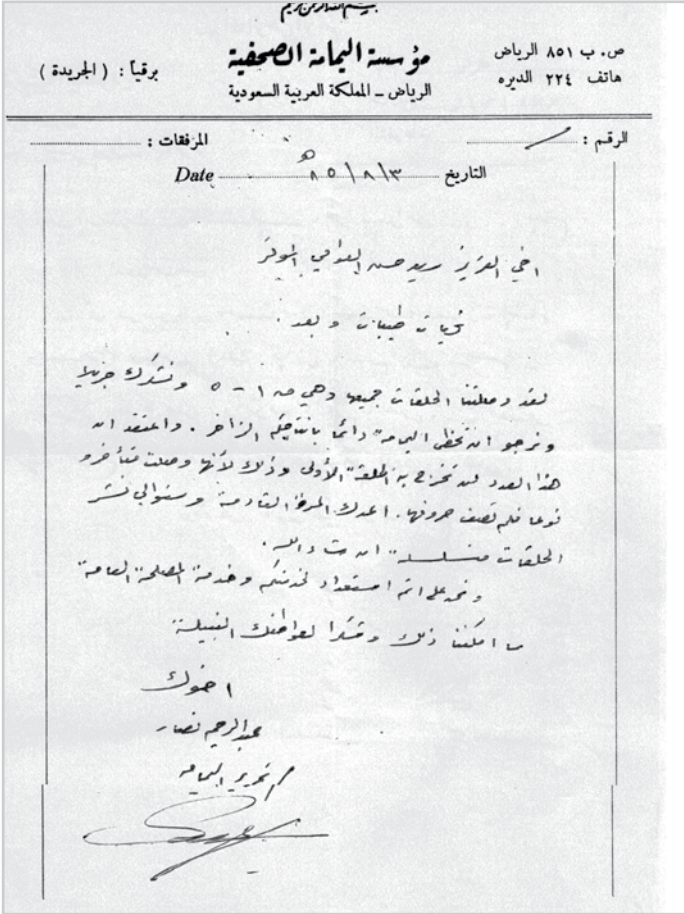 بسم الله الرحمن الرحيم
مؤسسة اليمامة الصحفية
الرياض – المملكة العربية السعودية
ص. ب ٨٥١ الرياض
هاتف ٢٢٤ الديره
برقياً : ( الجريدة )
الرقم :
المرفقات :
التاريخ ٨٥/٨/٣ هـ Date
اخي العزيز سيد حسن العوامي الموقر
تحيات طيبات وبعد .
لقد وصلتنا الحلقات جميعها وهي من ١ - ٥ ونشكرك جزيلا
ونرجو ان تحظى اليمامة دائما بانتاجكم الزاخر . واعتقد ان
هذا العدد لن تخرج به الحلقة الأولى وذلك لأنها وصلت متأخرة
نوعا فلم تصف حروفها . المرة القادمة وسنوالي نشر
الحلقات متسلسلة ان شاء الله .
ونحن على اتم استعداد لخدمتكم وخدمة المصلحة العامة
ما امكننا ذلك وشكرا لعواطفك النبيلة
اخوك
عبدالرحيم نصار
م تحرير اليمامه